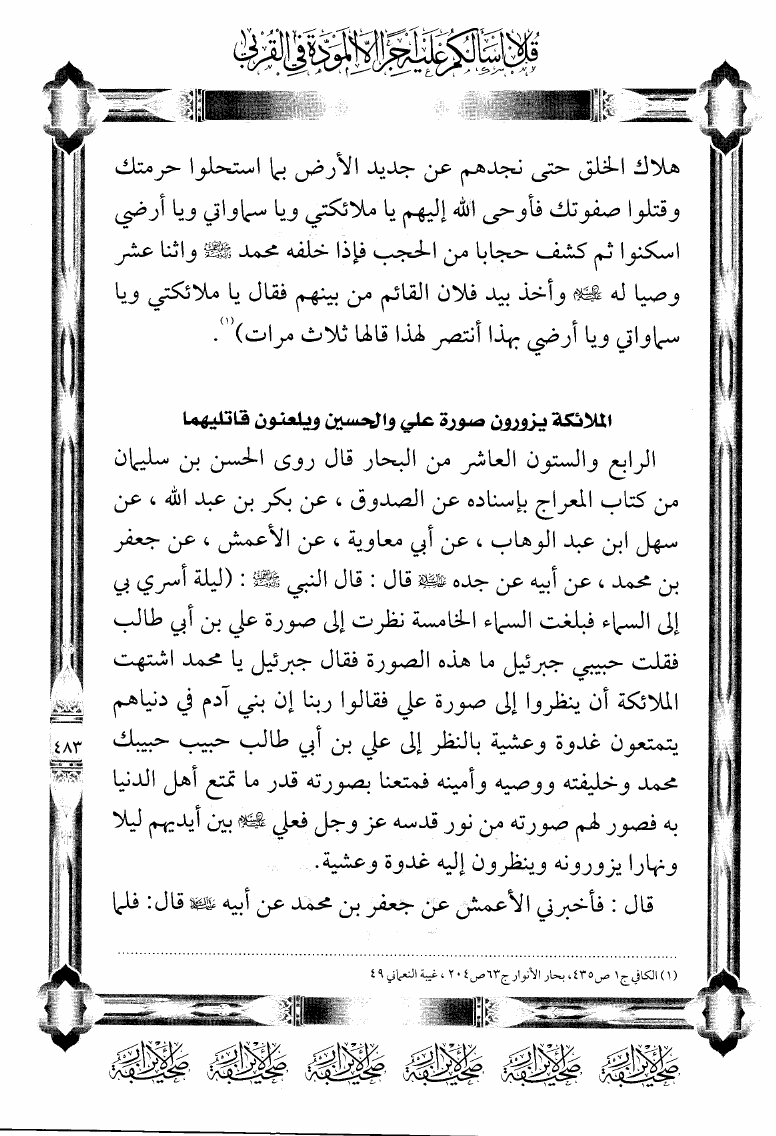 قل لا أسألكم عليه أجرا إلا المودة في القربى
هلاك الخلق حتى نجدهم عن جديد الأرض بما استحلوا حرمتك
وقتلوا صفوتك فأوحى الله إليهم يا ملائكتي ويا سماواتي ويا أرضي
اسكنوا ثم كشف حجابا من الحجب فإذا خلفه محمد ﷺ واثنا عشر
وصيا له عليه السلام وأخذ بيد فلان القائم من بينهم فقال يا ملائكتي ويا
سماواتي ويا أرضي بهذا أنتصر لهذا قالها ثلاث مرات)(١).
الملائكة يزورون صورة علي والحسين ويلعنون قاتليهما
الرابع والستون العاشر من البحار قال روى الحسن بن سليمان
من كتاب المعراج بإسناده عن الصدوق ، عن بكر بن عبد الله ، عن
سهل ابن عبد الوهاب ، عن أبي معاوية ، عن الأعمش ، عن جعفر
بن محمد ، عن أبيه عن جده عليه السلام قال : قال النبي ﷺ : (ليلة أسري بي
إلى السماء فبلغت السماء الخامسة نظرت إلى صورة علي بن أبي طالب
فقلت حبيبي جبرئيل ما هذه الصورة فقال جبرئيل يا محمد اشتهت
الملائكة أن ينظروا إلى صورة علي فقالوا ربنا إن بني آدم في دنياهم
يتمتعون غدوة وعشية بالنظر إلى علي بن أبي طالب حبيب حبيبك
محمد وخليفته ووصيه وأمينه فمتعنا بصورته قدر ما تمتع أهل الدنيا
به فصور لهم صورته من نور قدسه عز وجل فعلي عليه السلام بين أيديهم ليلا
ونهارا يزورونه وينظرون إليه غدوة وعشية.
قال : فأخبرني الأعمش عن جعفر بن محمد عن أبيه عليه السلام قال: فلما
(١) الكافي ج١ ص٤٣٥، بحار الأنوار ج٦٣ص٢٠٤ ، غيبة النعماني ٤٩
٤٨٣
صحيفة الأبرار صحيفة الأبرار صحيفة الأبرار صحيفة الأبرار صحيفة الأبرار صحيفة الأبرار